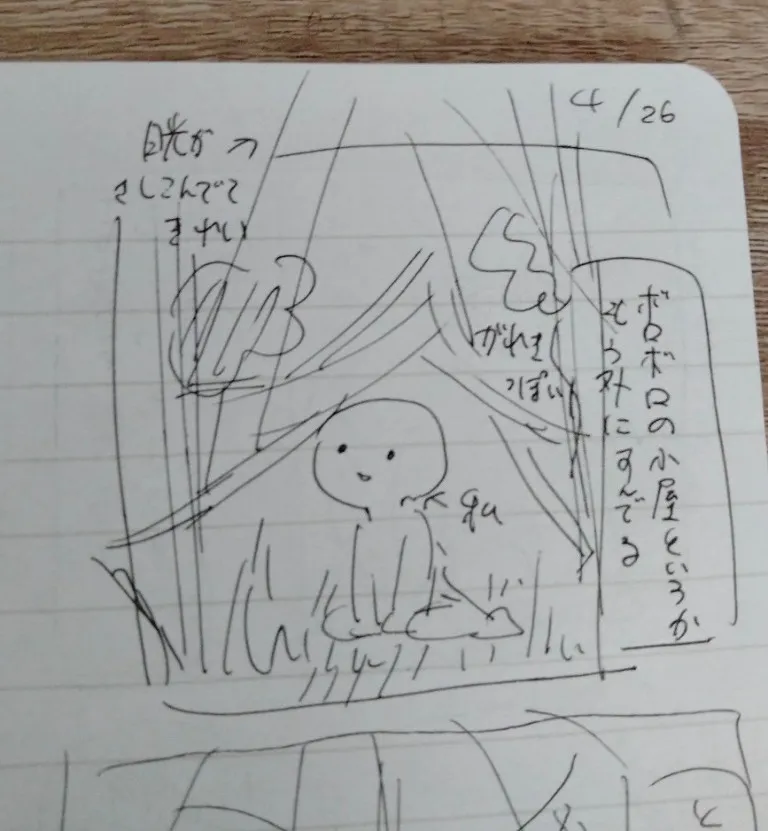 4/26
日光が
さしこんでて
きれい
がれき
っぽい
ボロボロの小屋というか
もう外にすんでる